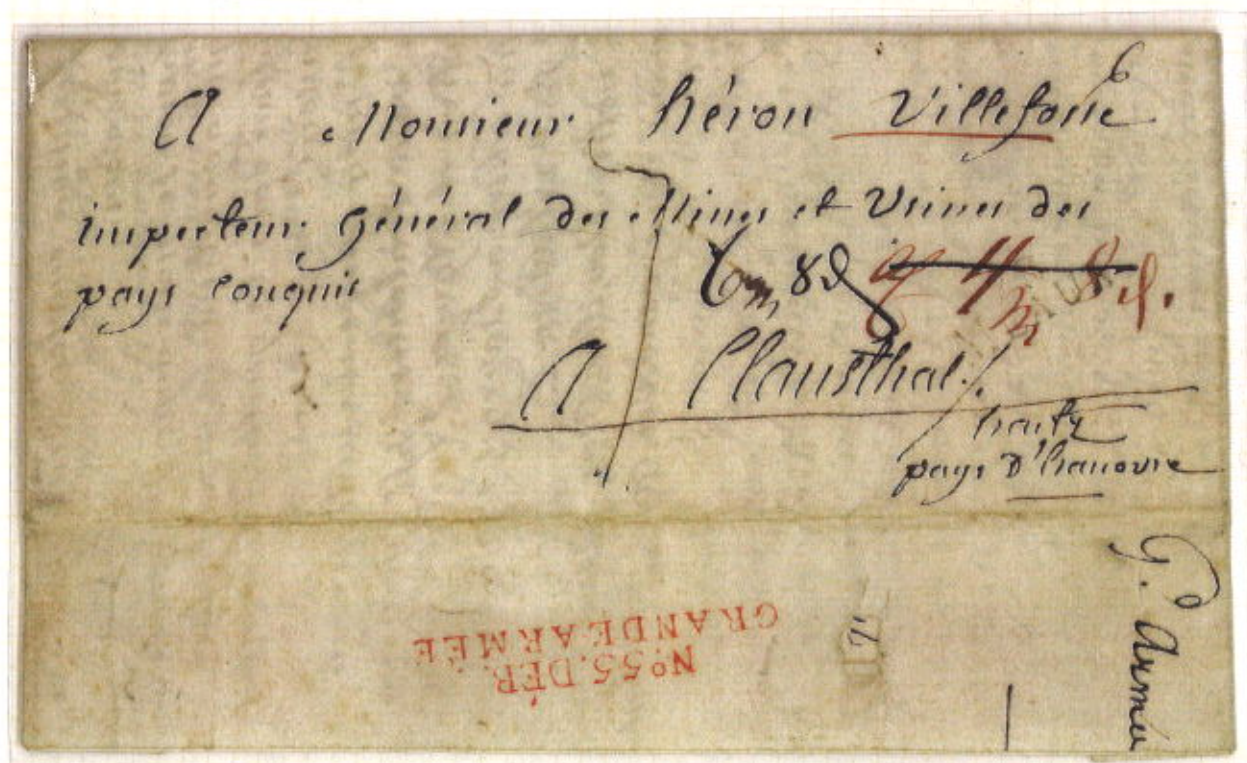 A Monsieur héron Villefosse
inspecteur Général des Mines et Usines des
pays Conquis
8d
8d.
A Clausthal.
hartz
pays D'hanovre
G.de Armée
Nº.55.DÉB.
GRANDE ARMÉE